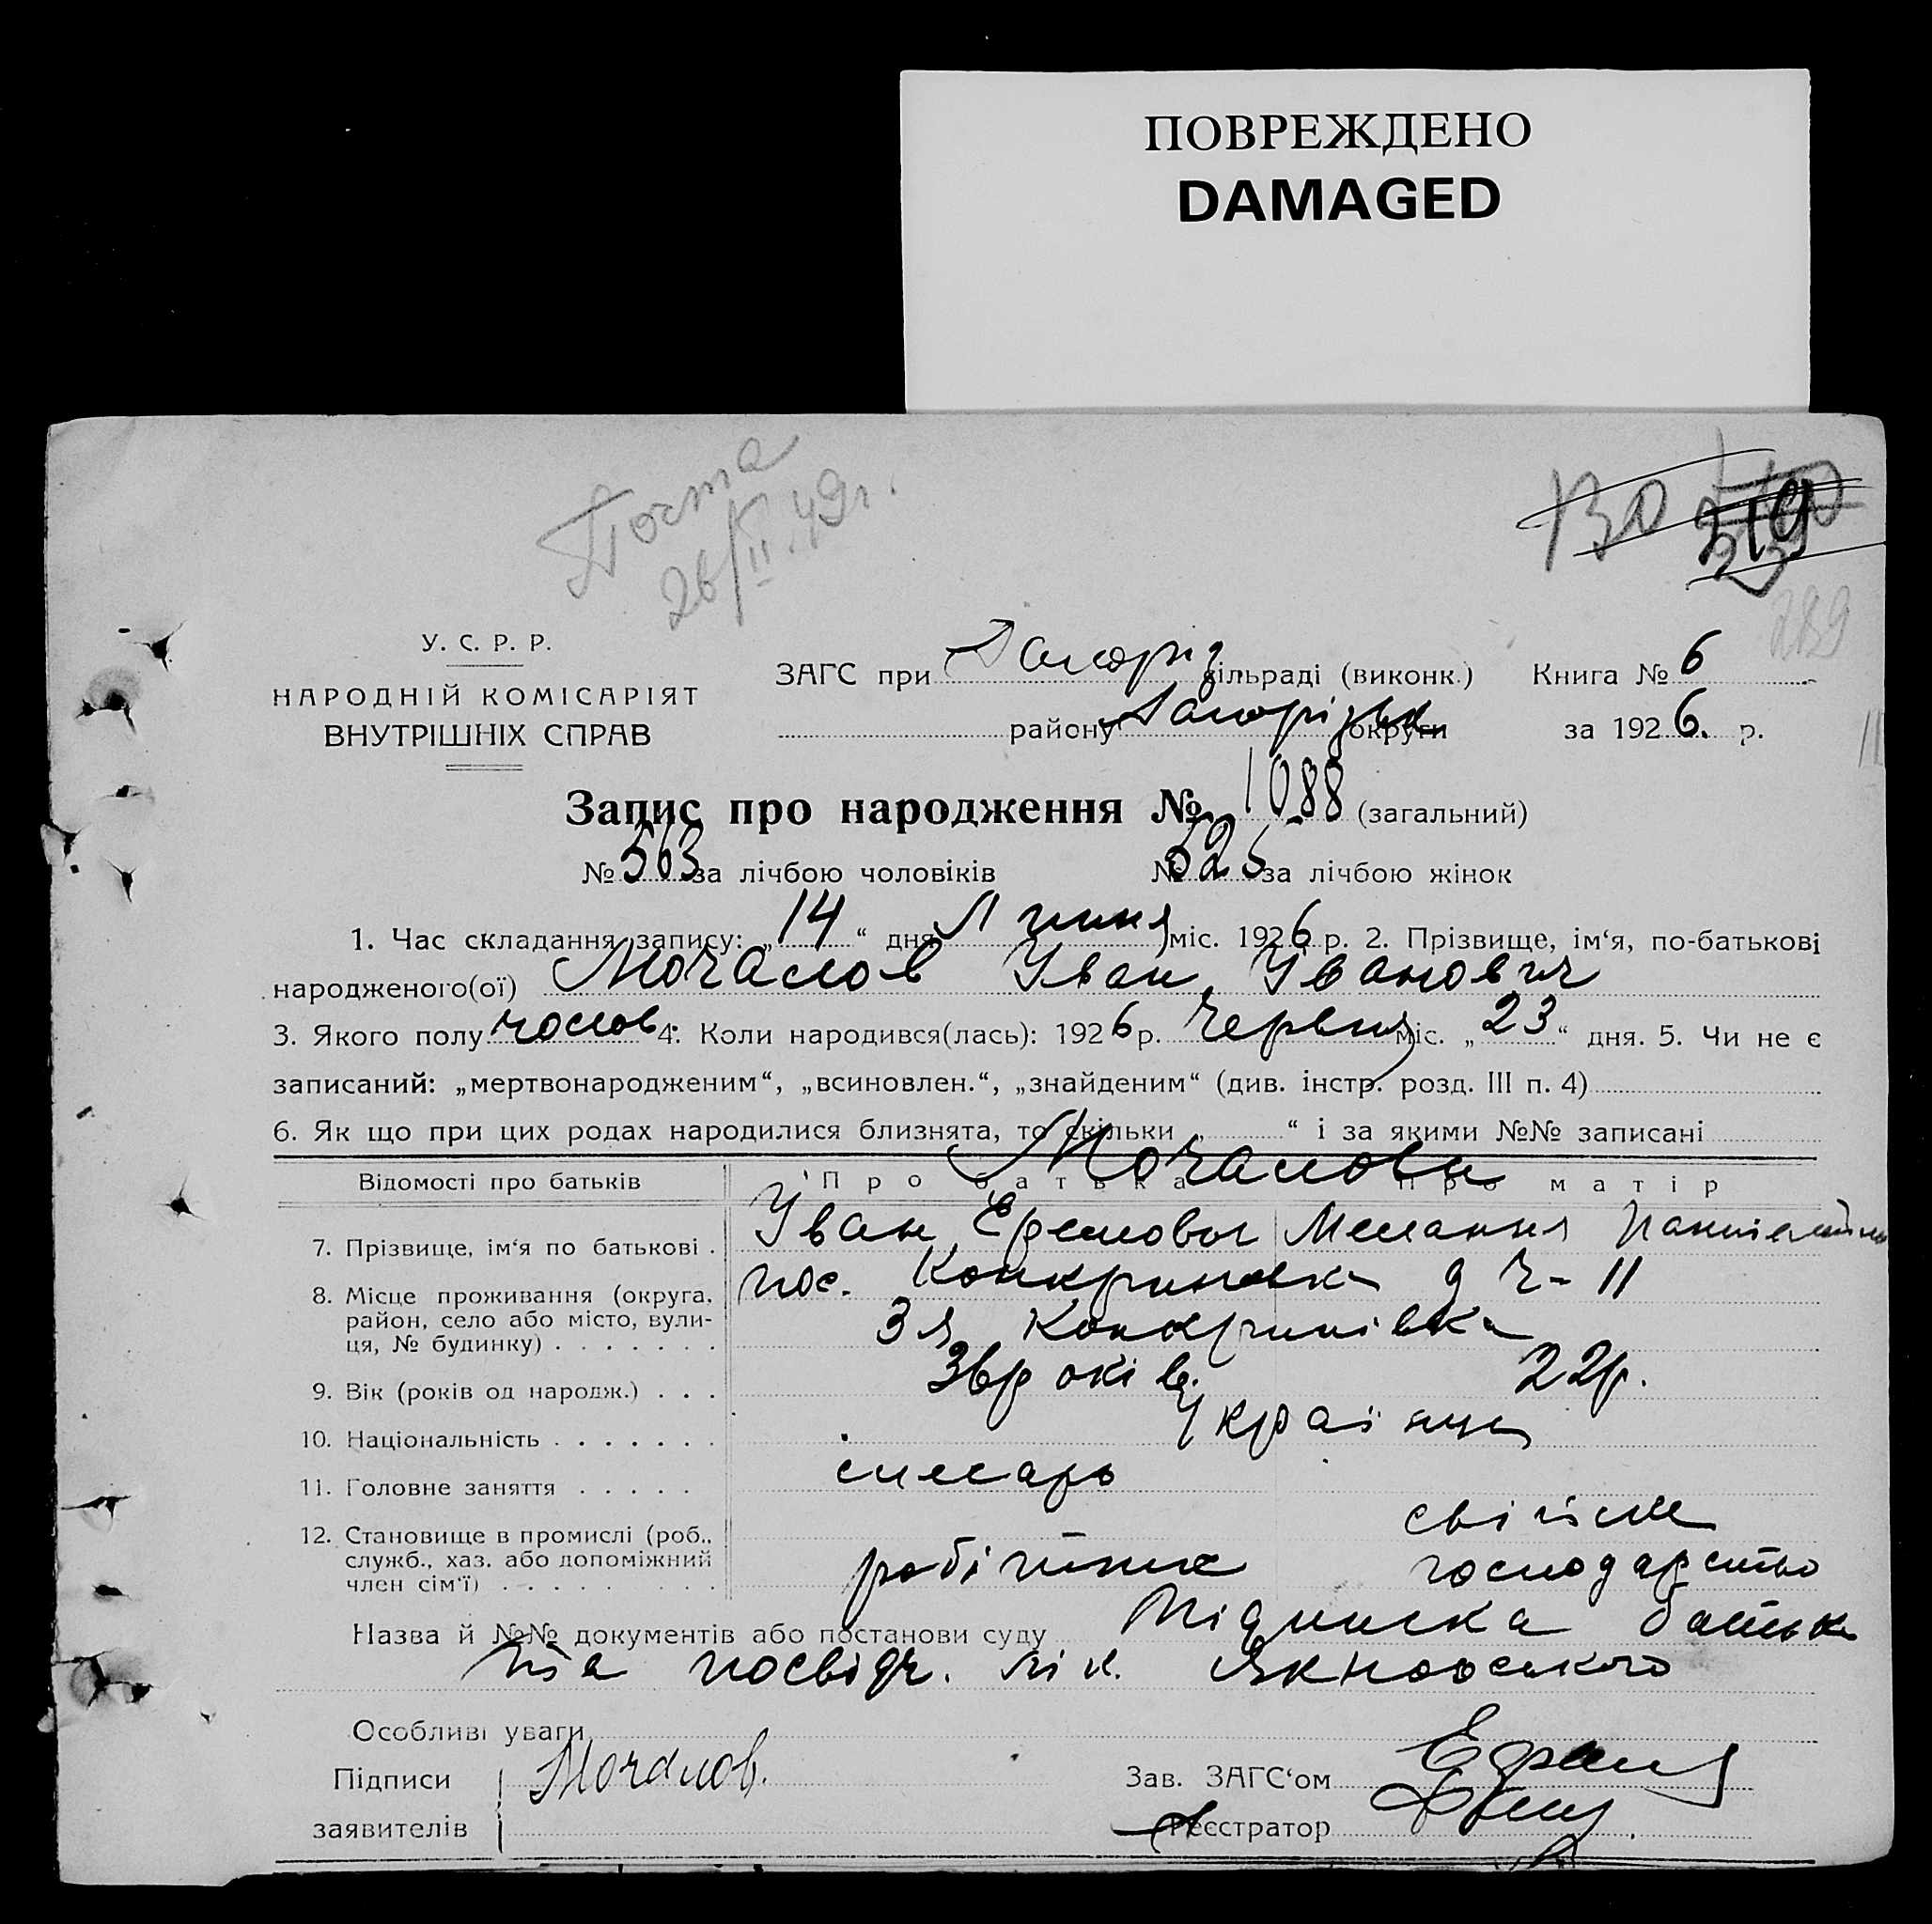 ПОВРЕЖДЕНО
DAMAGED
Почта
26/II.49г.
130
319
289
У. С. Р. Р.
НАРОДНІЙ КОМІСАРІЯТ
ВНУТРІШНІХ СПРАВ
ЗАГС при сільраді (виконк.) Книга № 6
району округи за 1926. р.
Запис про народження № 1088 (загальний)
№ 563 за лічбою чоловіків № 525 за лічбою жінок
1. Час складання запису: „14“ дня Липня міс. 1926 р. 2. Прізвище, ім‘я, по-батькові
народженого(ої) Мочалов Іван Іванович
3. Якого полу чолов. 4. Коли народився(лась): 1926 р. Червня міс. „23“ дня. 5. Чи не є
записаний: „мертвонародженим“, „всиновлен.“, „знайденим“ (див. інстр. розд. III п. 4)
6. Як що при цих родах народилися близнята, то скільки „ “ і за якими №№ записані
Відомості про батьків Про батька Про матір
Мочалови
7. Прізвище, ім‘я по батькові . Іван Меланія
8. Місце проживання (округа, пос. ч-11
район, село або місто, вули-
ця, № будинку) . . . . . . . 3я
9. Вік (років од народж.) . . . 36 років. 22р.
10. Національність . . . . . . . Українці
11. Головне заняття . . . . . слесарь
12. Становище в промислі (роб., свійське
служб., хаз. або допоміжний робітник господарство
член сім‘ї) . . . . . . . . .
Назва й №№ документів або постанови суду Підписка батька
та посвідч. лік.
Особливі уваги
Підписи Мочалов. Зав. ЗАГС‘ом
заявителів Реєстратор